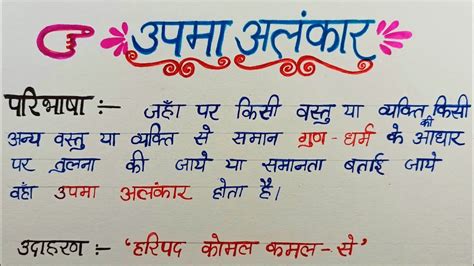 उपमा अलंकार
परिभाषा :- जहाँ पर किसी वस्तु या व्यक्ति की किसी
अन्य वस्तु या व्यक्ति से समान गुण - धर्म के आधार
पर तुलना की जाये या समानता बताई जाये
वहाँ उपमा अलंकार होता है।
उदाहरण :- 'हरिपद कोमल कमल - से'